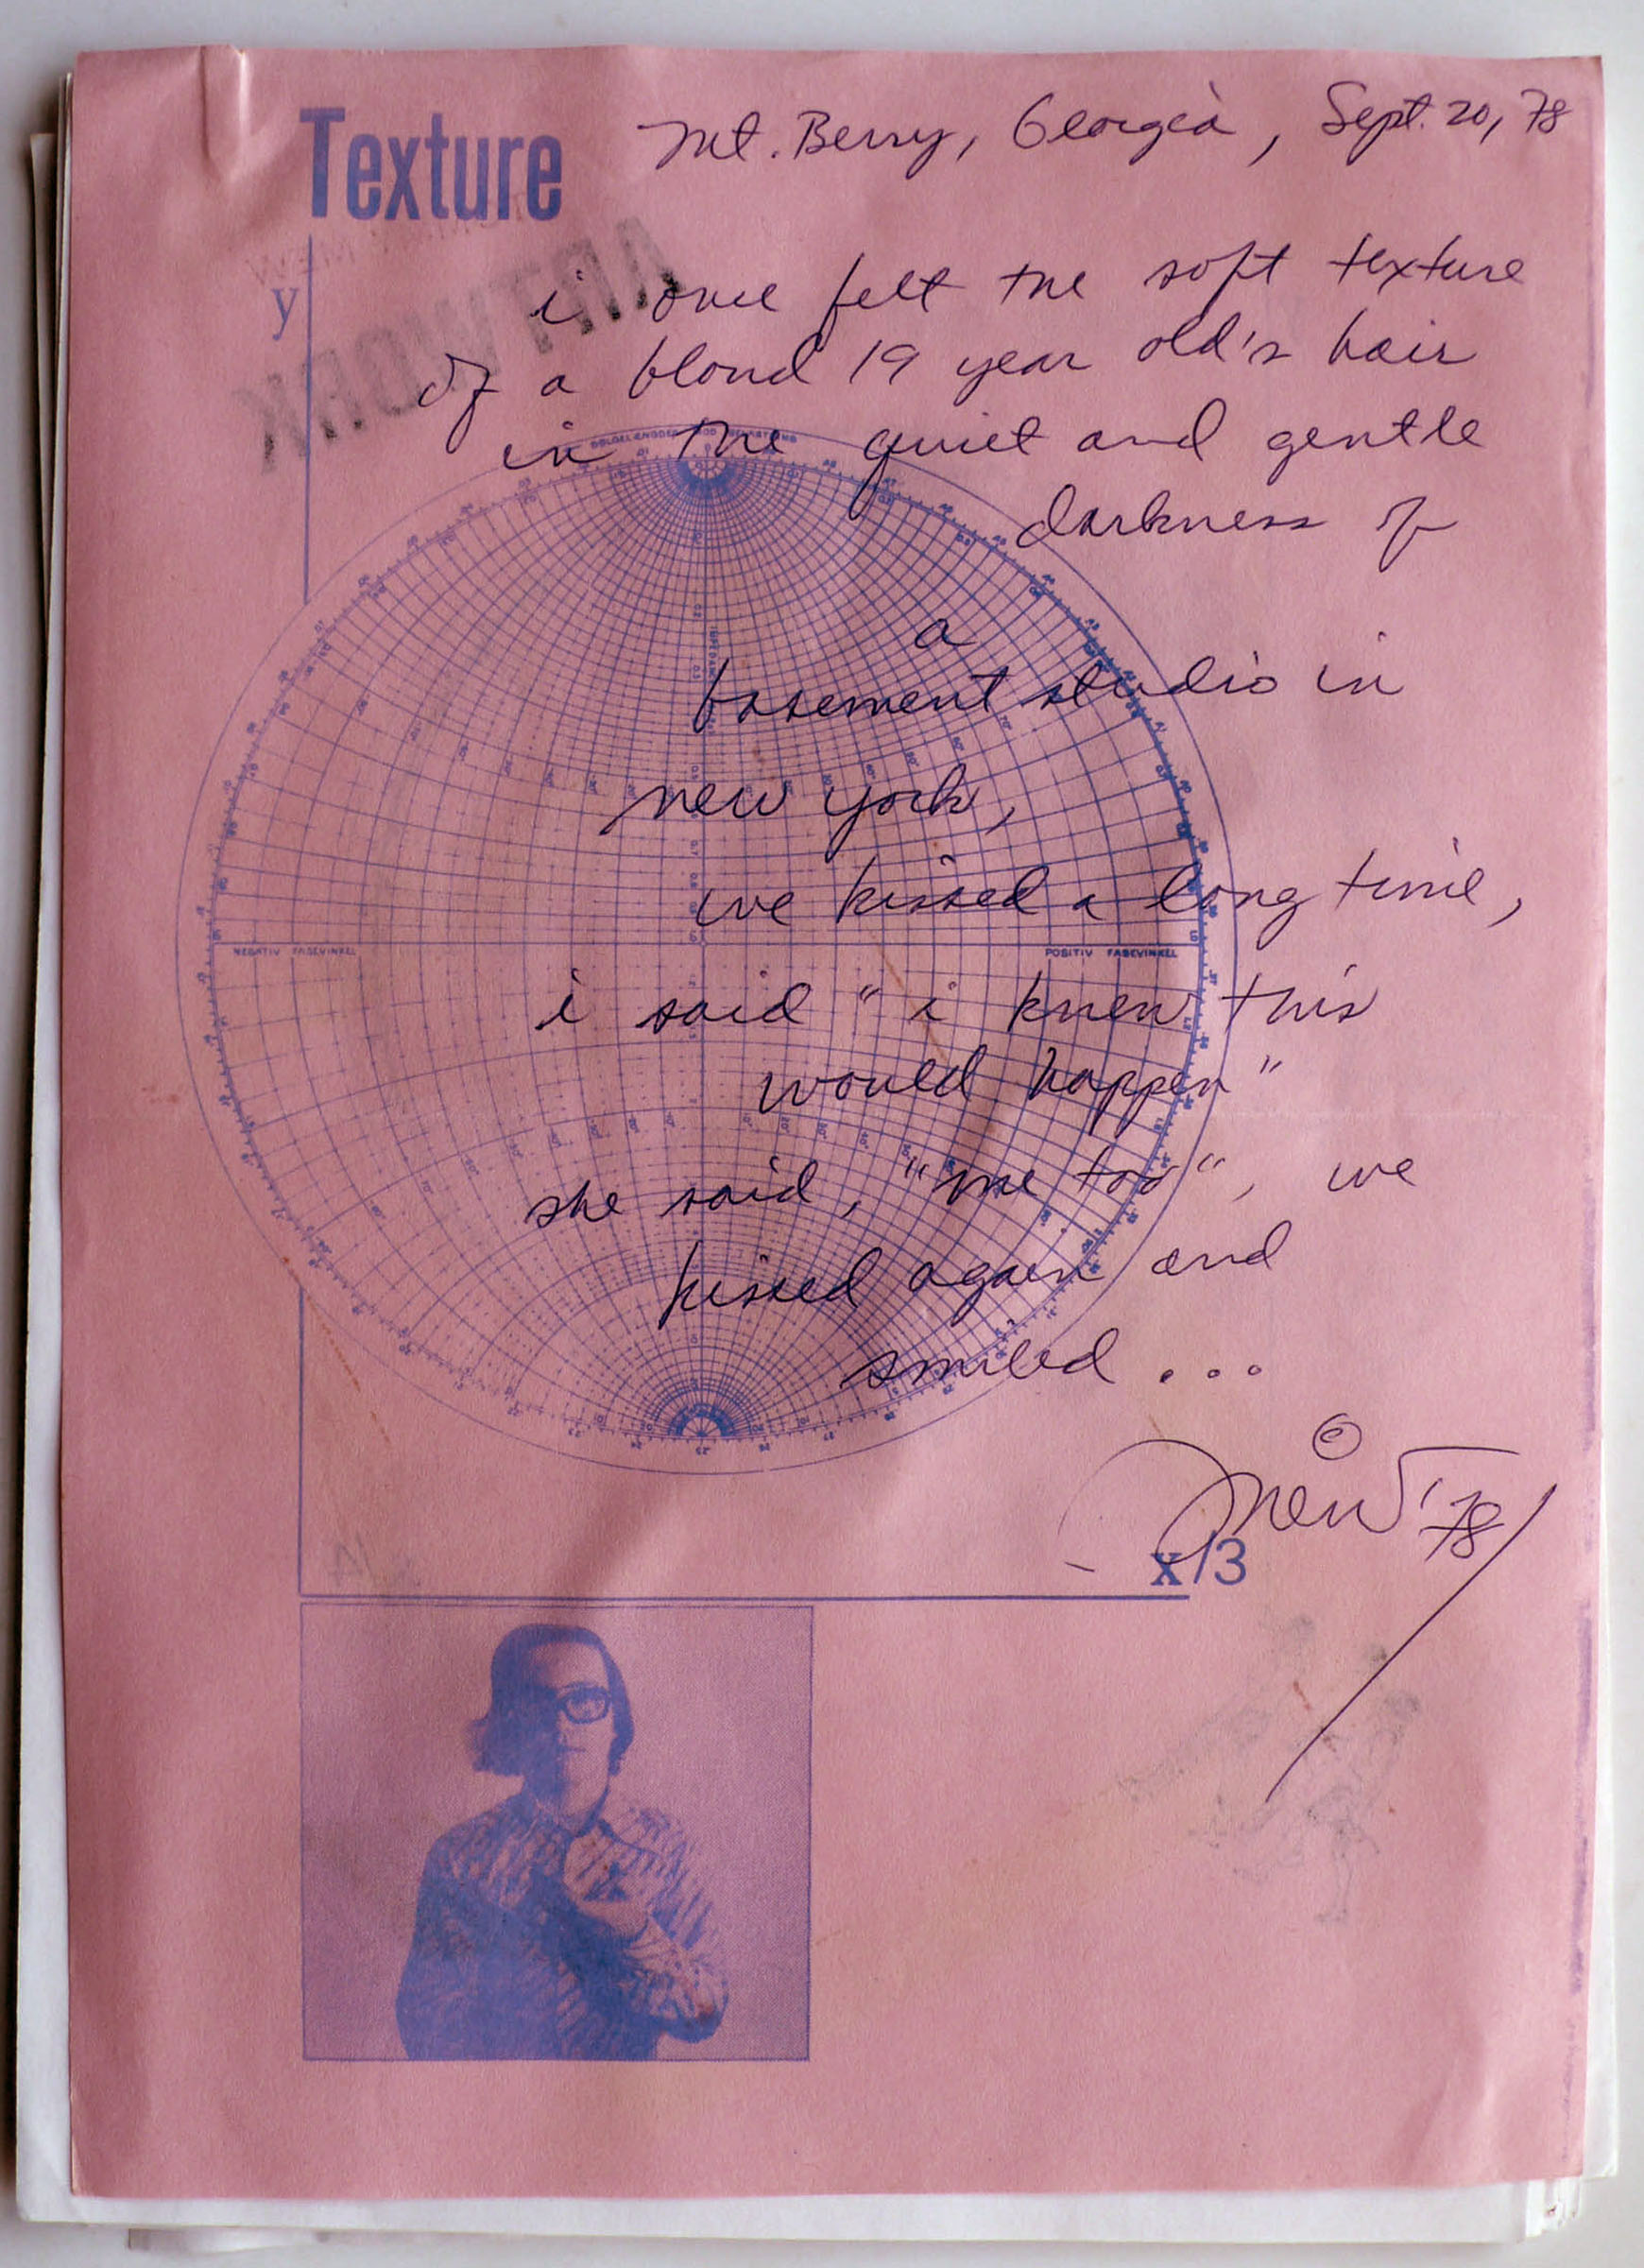 Texture
Mt. Berry, Georgia, Sept. 20, 78
y
ART WORK
i once felt the soft texture
of a blond 19 year old's hair
in the quiet and gentle
darkness of
a
basement studio in
new york,
we kissed a long time,
NEGATIV FASEVINKEL
POSITIV FASEVINKEL
i said "i knew this
would happen"
she said, "me too", we
kissed again and
smiled ...
©
'78
x/3